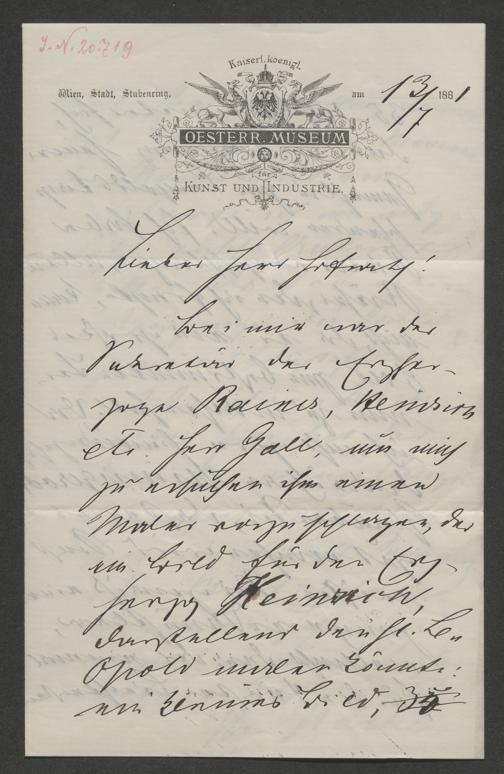 J. N. 20.719
Kaiserl. koenigl.
Wien, Stadt, Stubenring,
am 13/7 1881
OESTERR. MUSEUM
FÜR
KUNST UND INDUSTRIE.
Lieber Herr Hofrath!
bei mir war der
Sekretär der Erzher-
zoge Rainer, Heinrich
etc. Herr Gall, um mich
zu ersuchen ihm einen
Maler vorzuschlagen, der
ein Bild für den Erz-
herzog Heinrich,
darstellend den hl. Le-
opold malen könnte:
ein kleines Bild,